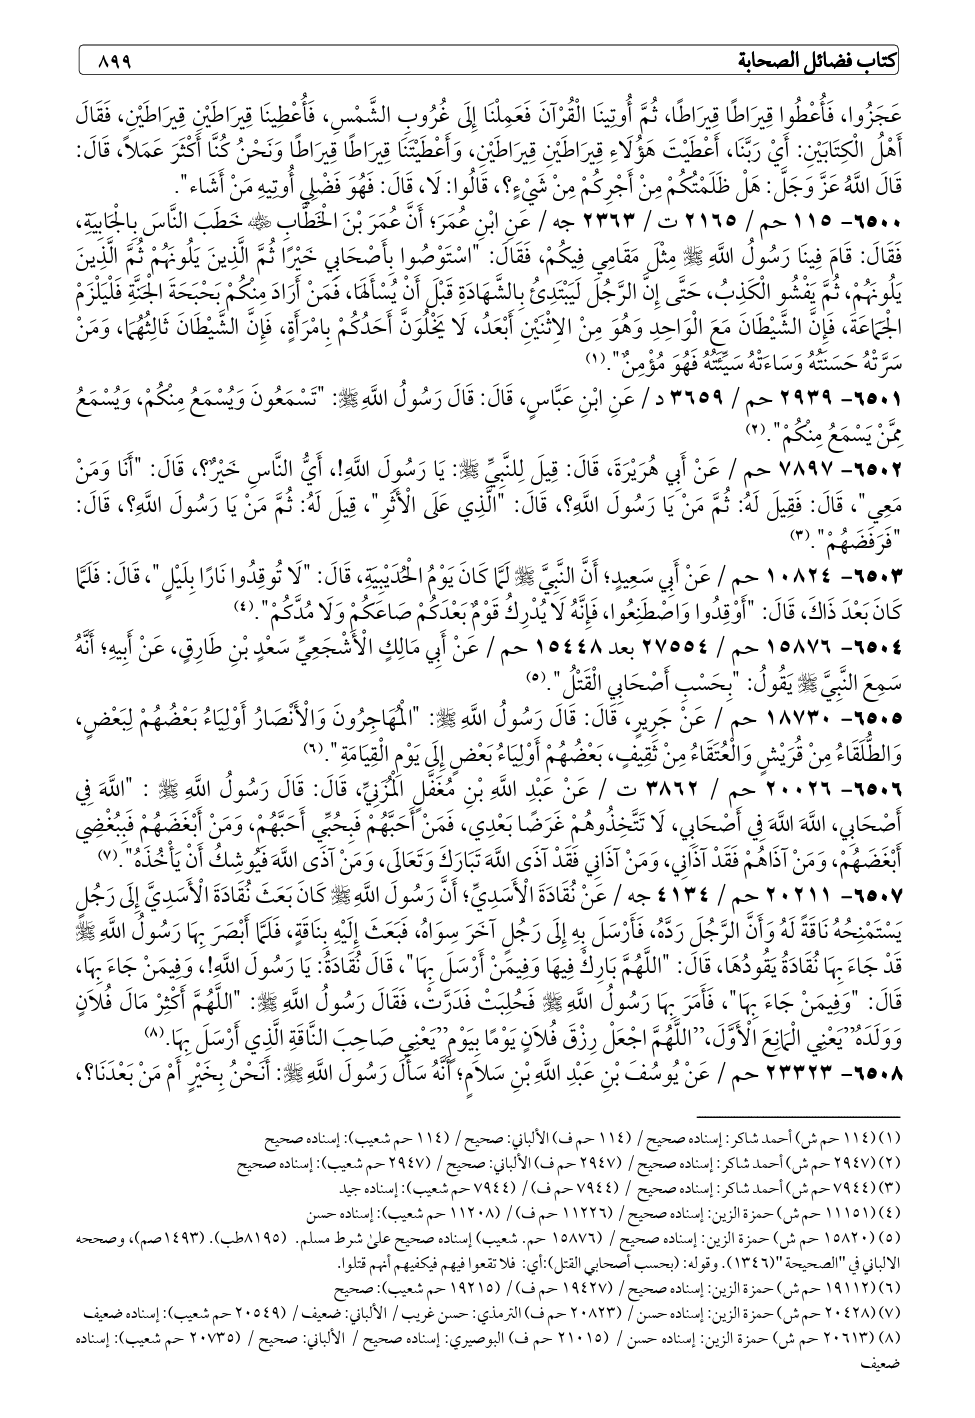 كتاب فضائل الصحابة
٨٩٩
عَجَزُوا، فَأُعْطُوا قِيرَاطًا قِيرَاطًا، ثُمَّ أُوتِينَا الْقُرْآنَ فَعَمِلْنَا إِلَى غُرُوبِ الشَّمْسِ، فَأُعْطِينَا قِيرَاطَيْنِ قِيرَاطَيْنِ، فَقَالَ
أَهْلُ الْكِتَابَيْنِ: أَيْ رَبَّنَا، أَعْطَيْتَ هَؤُلَاءِ قِيرَاطَيْنِ قِيرَاطَيْنِ، وَأَعْطَيْتَنَا قِيرَاطًا قِيرَاطًا وَنَحْنُ كُنَّا أَكْثَرَ عَمَلاً، قَالَ:
قَالَ اللَّهُ عَزَّ وَجَلَّ: هَلْ ظَلَمْتُكُمْ مِنْ أَجْرِكُمْ مِنْ شَيْءٍ؟، قَالُوا: لَا، قَالَ: فَهُوَ فَضْلِي أُوتِيهِ مَنْ أَشَاء".
٦٥٠٠- ١١٥ حم / ٢١٦٥ ت / ٢٣٦٣ جه / عَنِ ابْنِ عُمَرَ؛ أَنَّ عُمَرَ بْنَ الْخَطَّابِ ﵁ خَطَبَ النَّاسَ بِالْجَابِيَةِ،
فَقَالَ: قَامَ فِينَا رَسُولُ اللَّهِ ﷺ مِثْلَ مَقَامِي فِيكُمْ، فَقَالَ: "اسْتَوْصُوا بِأَصْحَابِي خَيْرًا ثُمَّ الَّذِينَ يَلُونَهُمْ ثُمَّ الَّذِينَ
يَلُونَهُمْ، ثُمَّ يَفْشُو الْكَذِبُ، حَتَّى إِنَّ الرَّجُلَ لَيَبْتَدِئُ بِالشَّهَادَةِ قَبْلَ أَنْ يُسْأَلَهَا، فَمَنْ أَرَادَ مِنْكُمْ بَحْبَحَةَ الْجَنَّةِ فَلْيَلْزَمْ
الْجَمَاعَةَ، فَإِنَّ الشَّيْطَانَ مَعَ الْوَاحِدِ وَهُوَ مِنْ الِاثْنَيْنِ أَبْعَدُ، لَا يَخْلُوَنَّ أَحَدُكُمْ بِامْرَأَةٍ، فَإِنَّ الشَّيْطَانَ ثَالِثُهُمَا، وَمَنْ
سَرَّتْهُ حَسَنَتُهُ وَسَاءَتْهُ سَيِّئَتُهُ فَهُوَ مُؤْمِنٌ".(١)
٦٥٠١- ٢٩٣٩ حم / ٣٦٥٩ د / عَنِ ابْنِ عَبَّاسٍ، قَالَ: قَالَ رَسُولُ اللَّهِ ﷺ: "تَسْمَعُونَ وَيُسْمَعُ مِنْكُمْ، وَيُسْمَعُ
مِمَّنْ يَسْمَعُ مِنْكُمْ".(٢)
٦٥٠٢- ٧٨٩٧ حم / عَنْ أَبِي هُرَيْرَةَ، قَالَ: قِيلَ لِلنَّبِيِّ ﷺ: يَا رَسُولَ اللَّهِ!، أَيُّ النَّاسِ خَيْرٌ؟، قَالَ: "أَنَا وَمَنْ
مَعِي"، قَالَ: فَقِيلَ لَهُ: ثُمَّ مَنْ يَا رَسُولَ اللَّهِ؟، قَالَ: "الَّذِي عَلَى الْأَثَرِ"، قِيلَ لَهُ: ثُمَّ مَنْ يَا رَسُولَ اللَّهِ؟، قَالَ:
"فَرَفَضَهُمْ".(٣)
٦٥٠٣- ١٠٨٢٤ حم / عَنْ أَبِي سَعِيدٍ؛ أَنَّ النَّبِيَّ ﷺ لَمَّا كَانَ يَوْمُ الْحُدَيْبِيَةِ، قَالَ: "لَا تُوقِدُوا نَارًا بِلَيْلٍ"، قَالَ: فَلَمَّا
كَانَ بَعْدَ ذَاكَ، قَالَ: "أَوْقِدُوا وَاصْطَنِعُوا، فَإِنَّهُ لَا يُدْرِكُ قَوْمٌ بَعْدَكُمْ صَاعَكُمْ وَلَا مُدَّكُمْ".(٤)
٦٥٠٤- ١٥٨٧٦ حم / ٢٧٥٥٤ بعد ١٥٤٤٨ حم / عَنْ أَبِي مَالِكٍ الْأَشْجَعِيِّ سَعْدِ بْنِ طَارِقٍ، عَنْ أَبِيهِ؛ أَنَّهُ
سَمِعَ النَّبِيَّ ﷺ يَقُولُ: "بِحَسْبِ أَصْحَابِي الْقَتْلُ".(٥)
٦٥٠٥- ١٨٧٣٠ حم / عَنْ جَرِيرٍ، قَالَ: قَالَ رَسُولُ اللَّهِ ﷺ: "الْمُهَاجِرُونَ وَالْأَنْصَارُ أَوْلِيَاءُ بَعْضُهُمْ لِبَعْضٍ،
وَالطُّلَقَاءُ مِنْ قُرَيْشٍ وَالْعُتَقَاءُ مِنْ ثَقِيفٍ، بَعْضُهُمْ أَوْلِيَاءُ بَعْضٍ إِلَى يَوْمِ الْقِيَامَةِ".(٦)
٦٥٠٦- ٢٠٠٢٦ حم / ٣٨٦٢ ت / عَنْ عَبْدِ اللَّهِ بْنِ مُغَفَّلٍ الْمُزَنِيِّ، قَالَ: قَالَ رَسُولُ اللَّهِ ﷺ : "اللَّهَ فِي
أَصْحَابِي، اللَّهَ اللَّهَ فِي أَصْحَابِي، لَا تَتَّخِذُوهُمْ غَرَضًا بَعْدِي، فَمَنْ أَحَبَّهُمْ فَبِحُبِّي أَحَبَّهُمْ، وَمَنْ أَبْغَضَهُمْ فَبِبُغْضِي
أَبْغَضَهُمْ، وَمَنْ آذَاهُمْ فَقَدْ آذَانِي، وَمَنْ آذَانِي فَقَدْ آذَى اللَّهَ تَبَارَكَ وَتَعَالَى، وَمَنْ آذَى اللَّهَ فَيُوشِكُ أَنْ يَأْخُذَهُ".(٧)
٦٥٠٧- ٢٠٢١١ حم / ٤١٣٤ جه / عَنْ نُقَادَةَ الْأَسَدِيِّ؛ أَنَّ رَسُولَ اللَّهِ ﷺ كَانَ بَعَثَ نُقَادَةَ الْأَسَدِيَّ إِلَى رَجُلٍ
يَسْتَمْنِحُهُ نَاقَةً لَهُ وَأَنَّ الرَّجُلَ رَدَّهُ، فَأَرْسَلَ بِهِ إِلَى رَجُلٍ آخَرَ سِوَاهُ، فَبَعَثَ إِلَيْهِ بِنَاقَةٍ، فَلَمَّا أَبْصَرَ بِهَا رَسُولُ اللَّهِ ﷺ
قَدْ جَاءَ بِهَا نُقَادَةُ يَقُودُهَا، قَالَ: "اللَّهُمَّ بَارِكْ فِيهَا وَفِيمَنْ أَرْسَلَ بِهَا"، قَالَ نُقَادَةُ: يَا رَسُولَ اللَّهِ!، وَفِيمَنْ جَاءَ بِهَا،
قَالَ: "وَفِيمَنْ جَاءَ بِهَا"، فَأَمَرَ بِهَا رَسُولُ اللَّهِ ﷺ فَحُلِبَتْ فَدَرَّتْ، فَقَالَ رَسُولُ اللَّهِ ﷺ: "اللَّهُمَّ أَكْثِرْ مَالَ فُلَانٍ
وَوَلَدَهُ" يَعْنِي الْمَانِعَ الْأَوَّلَ، "اللَّهُمَّ اجْعَلْ رِزْقَ فُلَانٍ يَوْمًا بِيَوْمٍ" يَعْنِي صَاحِبَ النَّاقَةِ الَّذِي أَرْسَلَ بِهَا.(٨)
٦٥٠٨- ٢٣٣٢٣ حم / عَنْ يُوسُفَ بْنِ عَبْدِ اللَّهِ بْنِ سَلَامٍ؛ أَنَّهُ سَأَلَ رَسُولَ اللَّهِ ﷺ: أَنَحْنُ بِخَيْرٍ أَمْ مَنْ بَعْدَنَا؟،
(١) (١١٤ حم ش) أحمد شاكر: إسناده صحيح / (١١٤ حم ف) الألباني: صحيح / (١١٤ حم شعيب): إسناده صحيح
(٢) (٢٩٤٧ حم ش) أحمد شاكر: إسناده صحيح / (٢٩٤٧ حم ف) الألباني: صحيح / (٢٩٤٧ حم شعيب): إسناده صحيح
(٣) (٧٩٤٤ حم ش) أحمد شاكر: إسناده صحيح / (٧٩٤٤ حم ف) / (٧٩٤٤ حم شعيب): إسناده جيد
(٤) (١١١٥١ حم ش) حمزة الزين: إسناده صحيح / (١١٢٢٦ حم ف) / (١١٢٠٨ حم شعيب): إسناده حسن
(٥) (١٥٨٢٠ حم ش) حمزة الزين: إسناده صحيح / (١٥٨٧٦ حم. شعيب) إسناده صحيح علىٰ شرط مسلم. (٨١٩٥طب). (١٤٩٣صم)، وصححه
الالباني في "الصحيحة "(١٣٤٦). وقوله: (بحسب أصحابي القتل):أي: فلا تقعوا فيهم فيكفيهم أنهم قتلوا.
(٦) (١٩١١٢ حم ش) حمزة الزين: إسناده صحيح / (١٩٤٢٧ حم ف) / (١٩٢١٥ حم شعيب): صحيح
(٧) (٢٠٤٢٨ حم ش) حمزة الزين: إسناده حسن / (٢٠٨٢٣ حم ف) الترمذي: حسن غريب / الألباني: ضعيف / (٢٠٥٤٩ حم شعيب): إسناده ضعيف
(٨) (٢٠٦١٣ حم ش) حمزة الزين: إسناده حسن / (٢١٠١٥ حم ف) البوصيري: إسناده صحيح / الألباني: صحيح / (٢٠٧٣٥ حم شعيب): إسناده
ضعيف